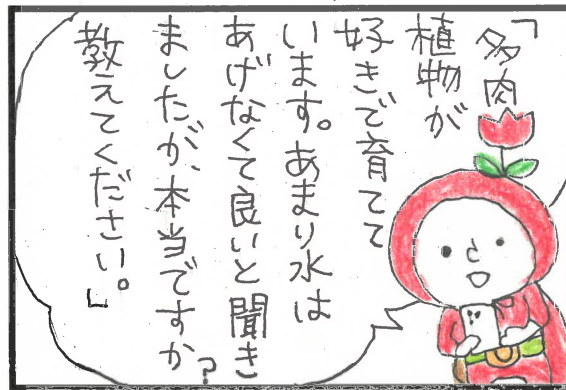 「多肉
植物が
好きで育てて
います。あまり水は
あげなくて良いと聞き
ましたが、本当ですか?
教えてください。」